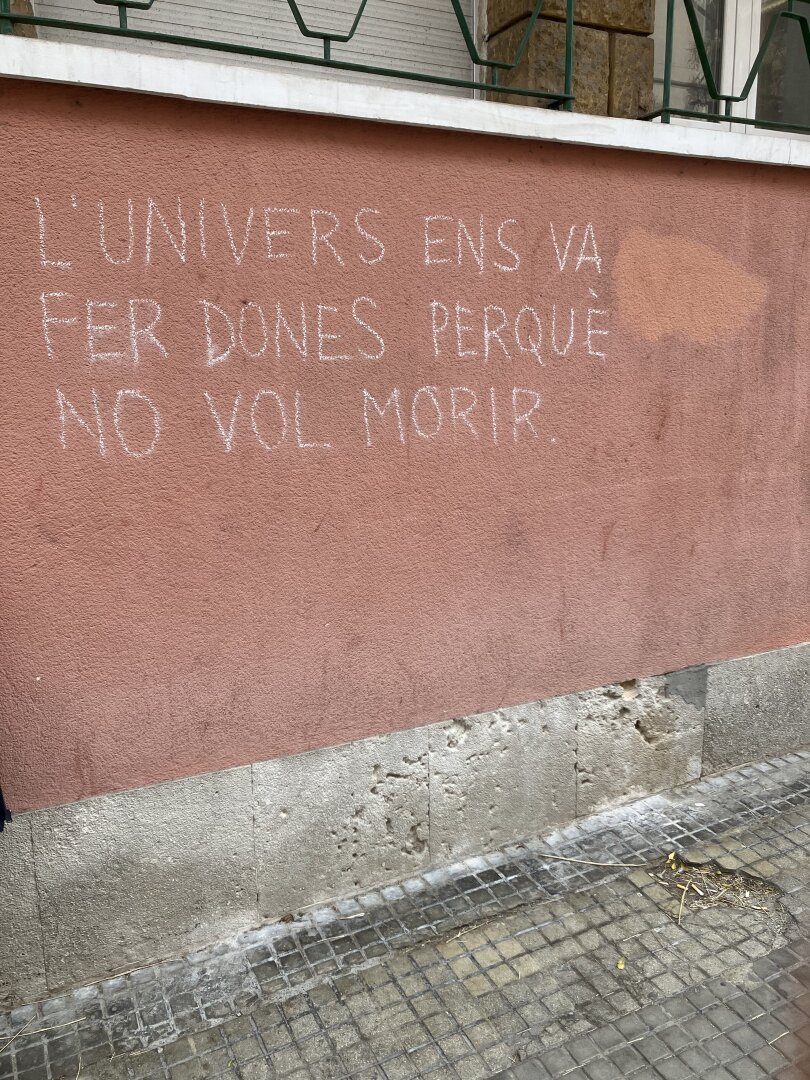 L'UNIVERS ENS VA
FER DONES PERQUÈ
NO VOL MORIR.